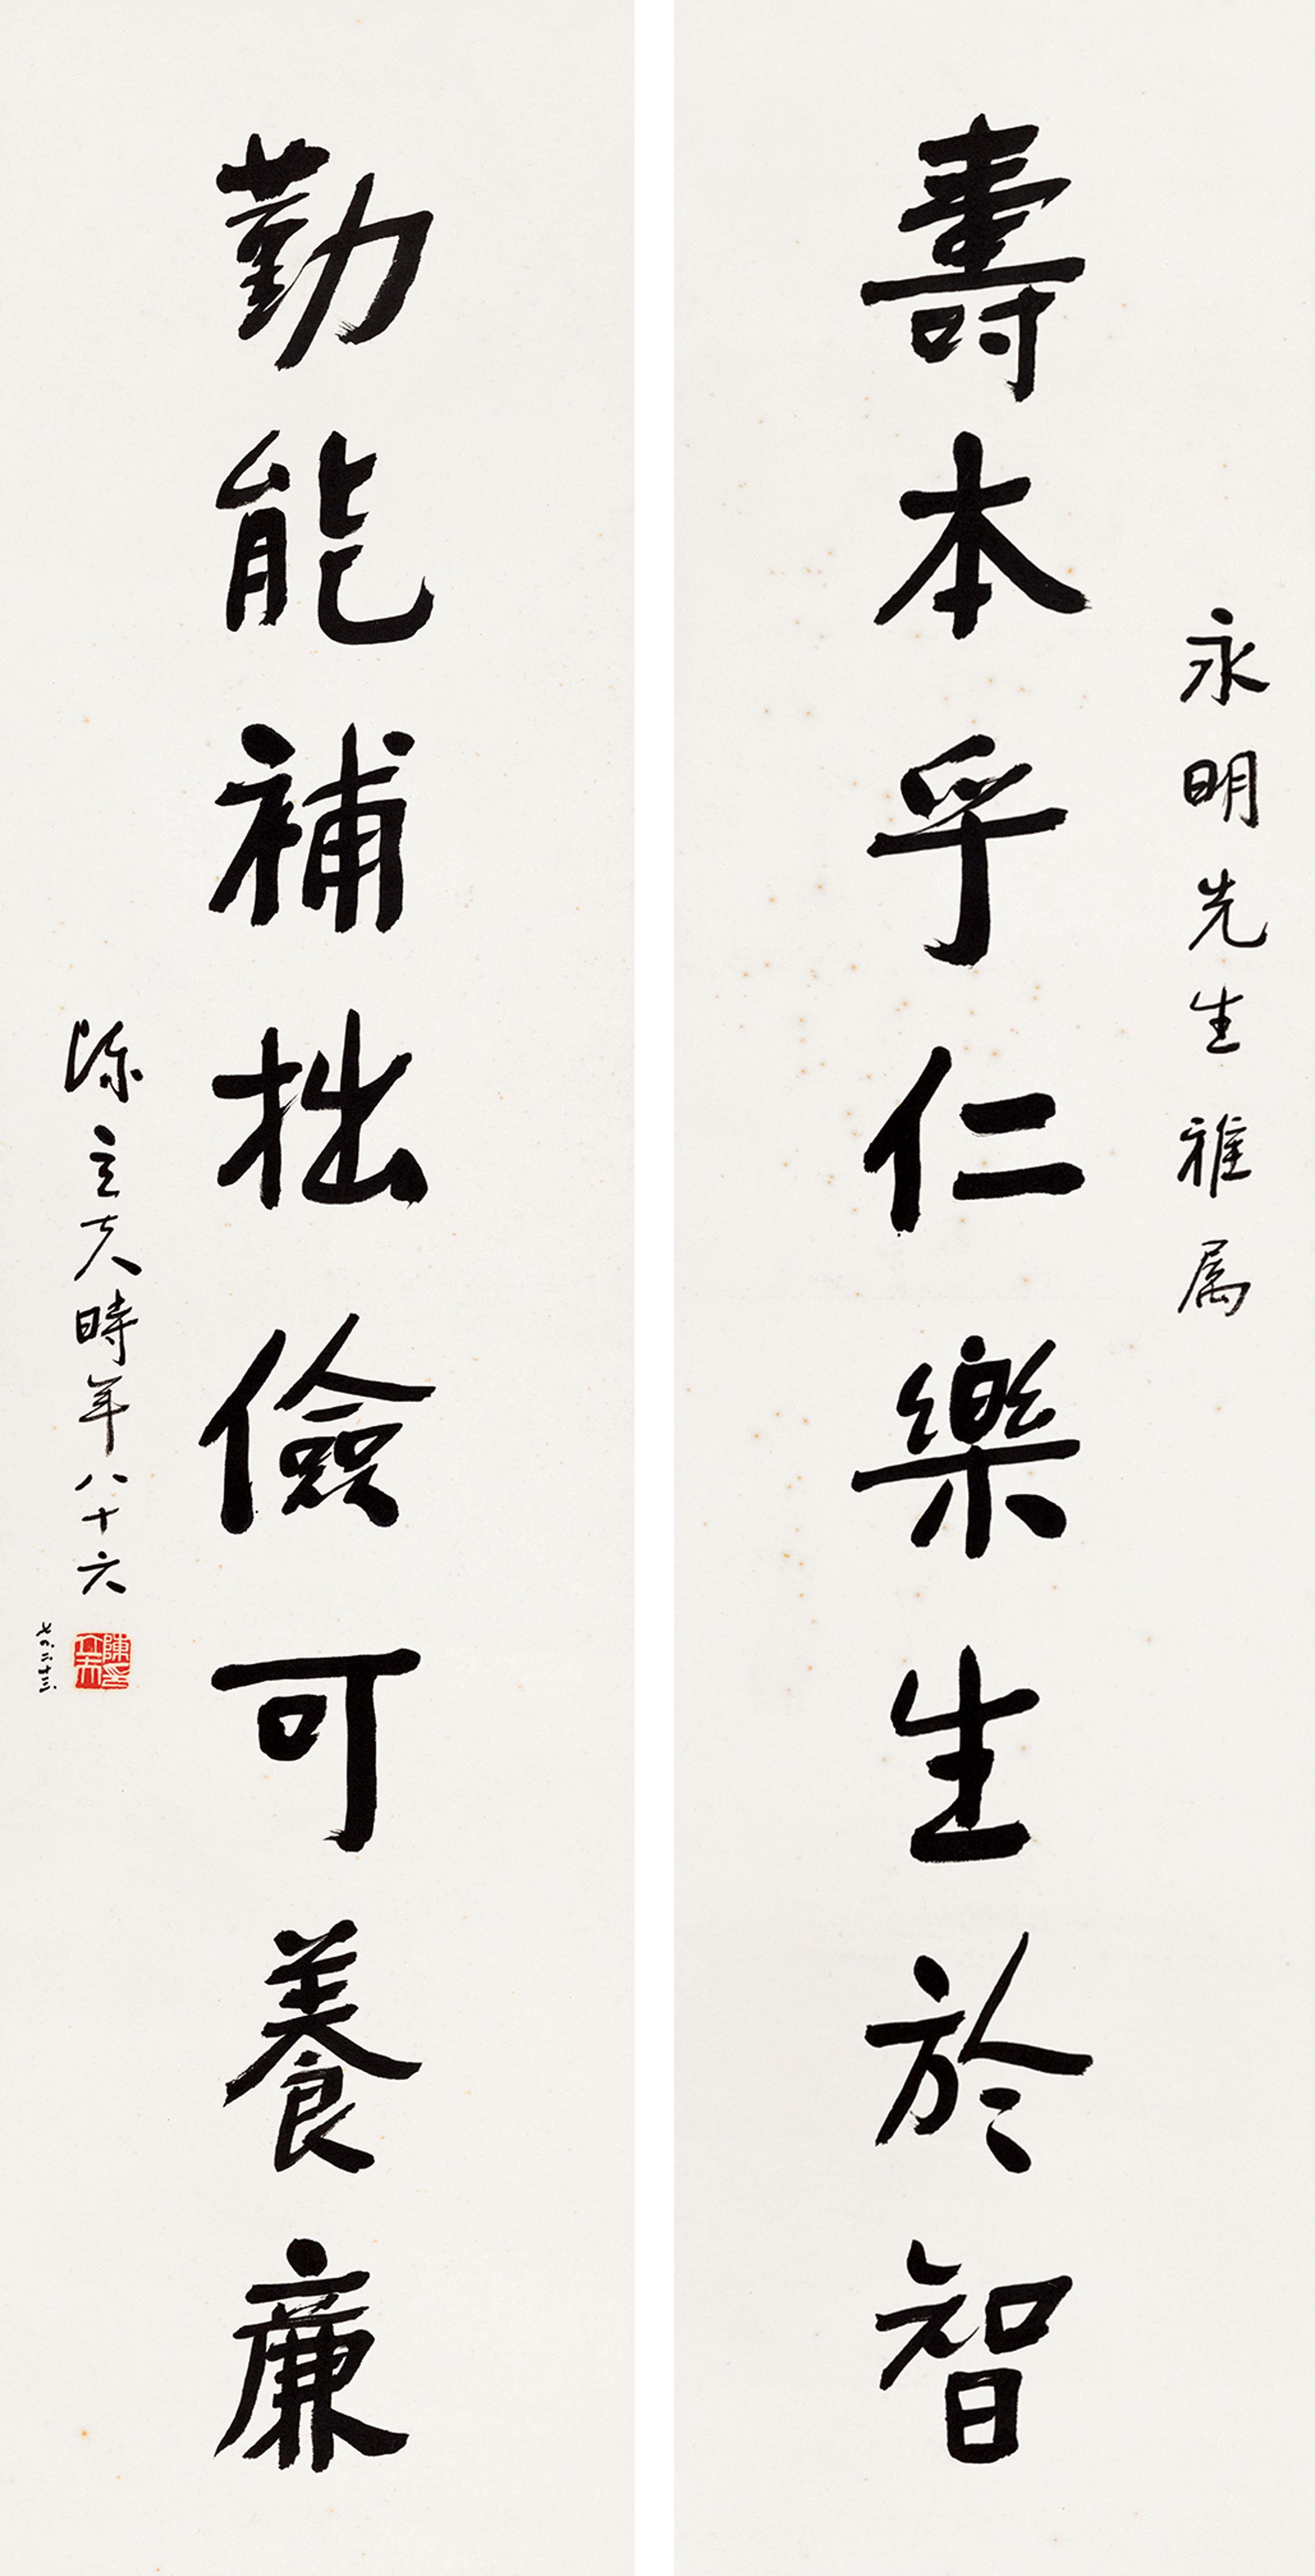 永明先生雅属
壽本乎仁樂生於智
勤能補拙儉可養廉
陳立夫時年八十六
陳立夫印